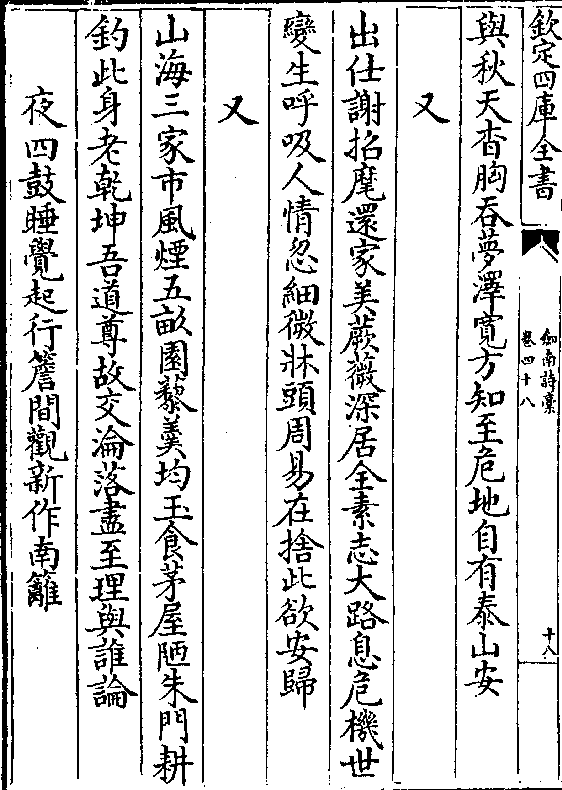 欽定四庫全書
劔南詩槀
卷四十八
十八
與秋天杳胸吞夢澤寛方知至危地自有泰山安
又
出仕謝招麾還家美蕨薇深居全素志大路息危機世
變生呼吸人情忽細微牀頭周易在捨此欲安歸
又
山海三家市風煙五畝園藜羮均玉食茅屋陋朱門耕
釣此身老乾坤吾道尊故交淪落盡至理與誰論
夜四鼓睡覺起行簷間觀新作南籬